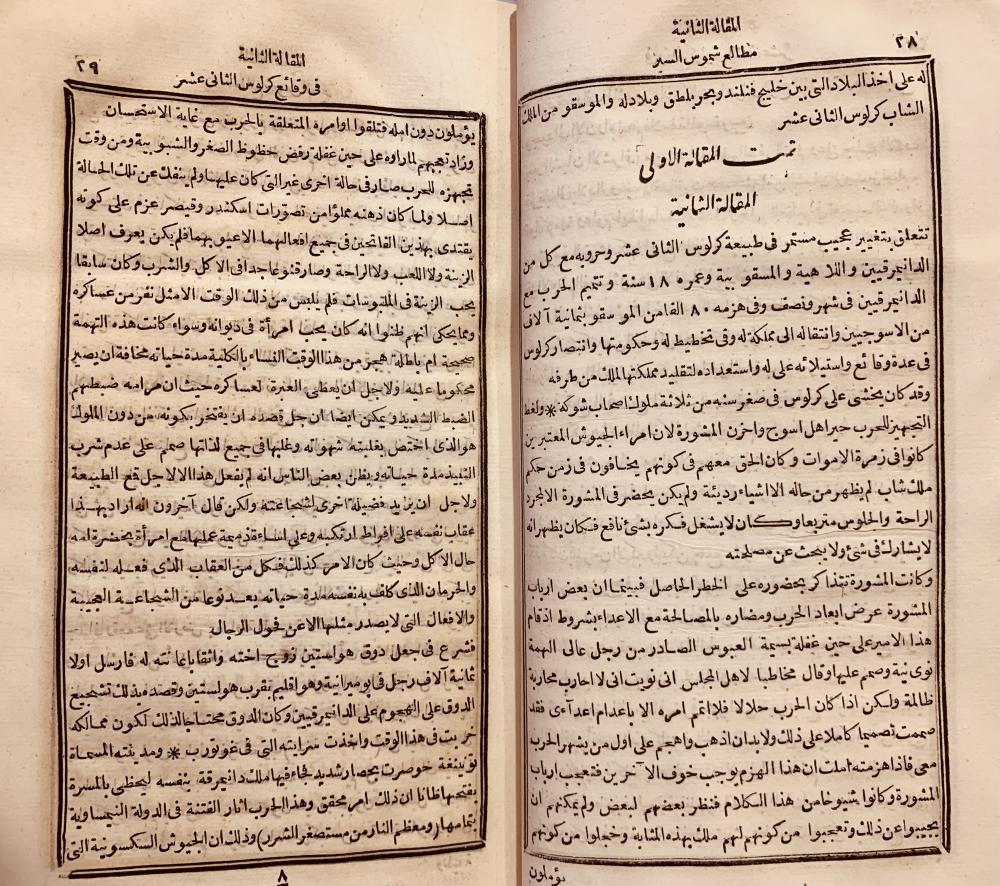 ٢٨
المقالة الثانية
مطالع شموس السير
له على اخذ البلاد التى بين خليج فنلند وبحر بلطق وبلاد له والموسقو من الملك
الشاب كرلوس الثانى عشر
تمت المقالة الاولى
المقالة الثانية
تتعلق بتغيير عجيب مستمر فى طبيعة كرلوس الثانى عشر وحروبه مع كل من
الدانيمرقيين واللاهية والمسقوبية وعمره ١٨ سنة وتتميم الحرب مع
الدانيمرقيين فى شهر ونصف وفى هزمه ٨٠ الفا من الموسقو بثمانية آلاف
من الاسوجيين وانتقاله الى مملكة له وفى تخطيط له وحكومتها وانتصار كرلوس
فى عدة وقائع واستيلائه على له واستعداده لتقليد مملكتها لملك من طرفه
وقد كان يخشى على كرلوس فى صغر سنه من ثلاثة ملوك اصحاب شوكة * ولغط
التجهيز للحرب حير اهل اسوج واحزن المشورة لان امراء الجيوش المعتبرين
كانوا فى زمرة الاموات وكان الحق معهم فى كونهم يخافون فى زمن حكم
ملك شاب لم يظهر من حاله الا اشياء رديئة ولم يكن يحضر فى المشورة الا لمجرد
الراحة والجلوس متربعا وكان لا يشغل فكره بشئ نافع فكان يظهر انه
لا يشارك فى شئ ولا يبحث عن مصلحته
وكانت المشورة تتذاكر بحضوره على الخطر الحاصل فبينما ان بعض ارباب
المشورة عرض ابعاد الحرب ومضاره بالمصالحة مع الاعداء بشروط اذ قام
هذا الامير على حين غفلة بسيمة العبوس الصادر من رجل عالى الهمة
نوى نية وصمم عليها وقال مخاطبا لاهل المجلس انى نويت انى لا احارب محاربة
ظالمة ولكن اذا كان الحرب حلالا فلا اتمم امره الا باعدام اعدآءى فقد
صممت تصميما كاملا على ذلك ولا بد ان اذهب واهجم على اول من يشهر الحرب
معى فاذا هزمته املت ان هذا الهزم يوجب خوف الآخرين فتعجب ارباب
المشورة وكانوا شيوخا من هذا الكلام فنظر بعضهم لبعض ولم يمكنهم ان
يجيبوا عن ذلك وتعجبوا من كونهم لهم ملك بهذه المثابة وخجلوا من كونهم
يؤملون
٢٩
المقالة الثانية
فى وقائع كرلوس الثانى عشر
يؤملون دون امله فتلقوا اوامره المتعلقة بالحرب مع غاية الاستحسان
وزاد تعجبهم لما راوه على حين غفلة رفض حظوظ الصغر والشبوبية ومن وقت
تجهزه للحرب صار فى حالة اخرى غير التى كان عليها ولم ينفك عن تلك الحالة
اصلا ولما كان ذهنه مملؤا من تصورات اسكندر وقيصر عزم على كونه
يقتدى بهذين الفاتحين فى جميع افعالهما الا عيوبهما فلم يكن يعرف اصلا
الزينة ولا اللعب ولا الراحة وصار قنوعا جدا فى الاكل والشرب وكان سابقا
يحب الزينة فى الملبوسات فلم يلبس من ذلك الوقت الا مثل نفر من عساكره
ومما يحكى انهم ظنوا انه كان يحب امرأة فى ديوانه وسواء كانت هذه التهمة
صحيحة ام باطلة هجر من هذا الوقت النساء بالكلية مدة حياته مخافة ان يصير
محكوما عليه ولاجل ان يعطى العبرة لعساكره حيث ان مرامه ضبطهم
الضبط الشديد ويمكن ايضا ان جل قصده ان يفتخر بكونه من دون الملوك
هو الذى اختص بغلبته شهواته وغلبها فى جميع لذاتها صمم على عدم شرب
النبيذ مدة حياته ويظن بعض الناس انه لم يفعل هذا الا لاجل قمع الطبيعة
ولاجل ان يزيد فضيلة اخرى لشجاعته ولكن قال آخرون انه اراد بهذا
عقاب نفسه على افراط ارتكبه وعلى اساءة ذميمة عملها مع امرأة بحضرة امه
حال الاكل وحيث كان الامر كذلك فكل من العقاب الذى فعله لنفسه
والحرمان الذى كلف به نفسه مدة حياته يعد نوعا من الشجاعة العجيبة
والافعال التى لا يصدر مثلها الا عن فحول الرجال
فشرع فى جعل دوق هولستين زوج اخته واثقا باعانته له فارسل اولا
ثمانية آلاف رجل فى بوميرانية وهو اقليم بقرب هولستين وقصده بذلك تشجيع
الدوق على الهجوم على الدانيمرقيين وكان الدوق محتاجا لذلك لكون ممالكه
خربت فى هذا الوقت واخذت سرايته التى فى غوتورب * ومدينته المسماة
تونينغة حوصرت بحصار شديد جاء فيها ملك دانيمرقة بنفسه ليحظى بالمسرة
بفتحها ظانا ان ذلك امر محقق وهذا الحرب اثار الفتنة فى الدولة النيمساوية
بتمامها (ومعظم النار من مستصغر الشرر) وذلك ان الجيوش السكسونية التى
٨